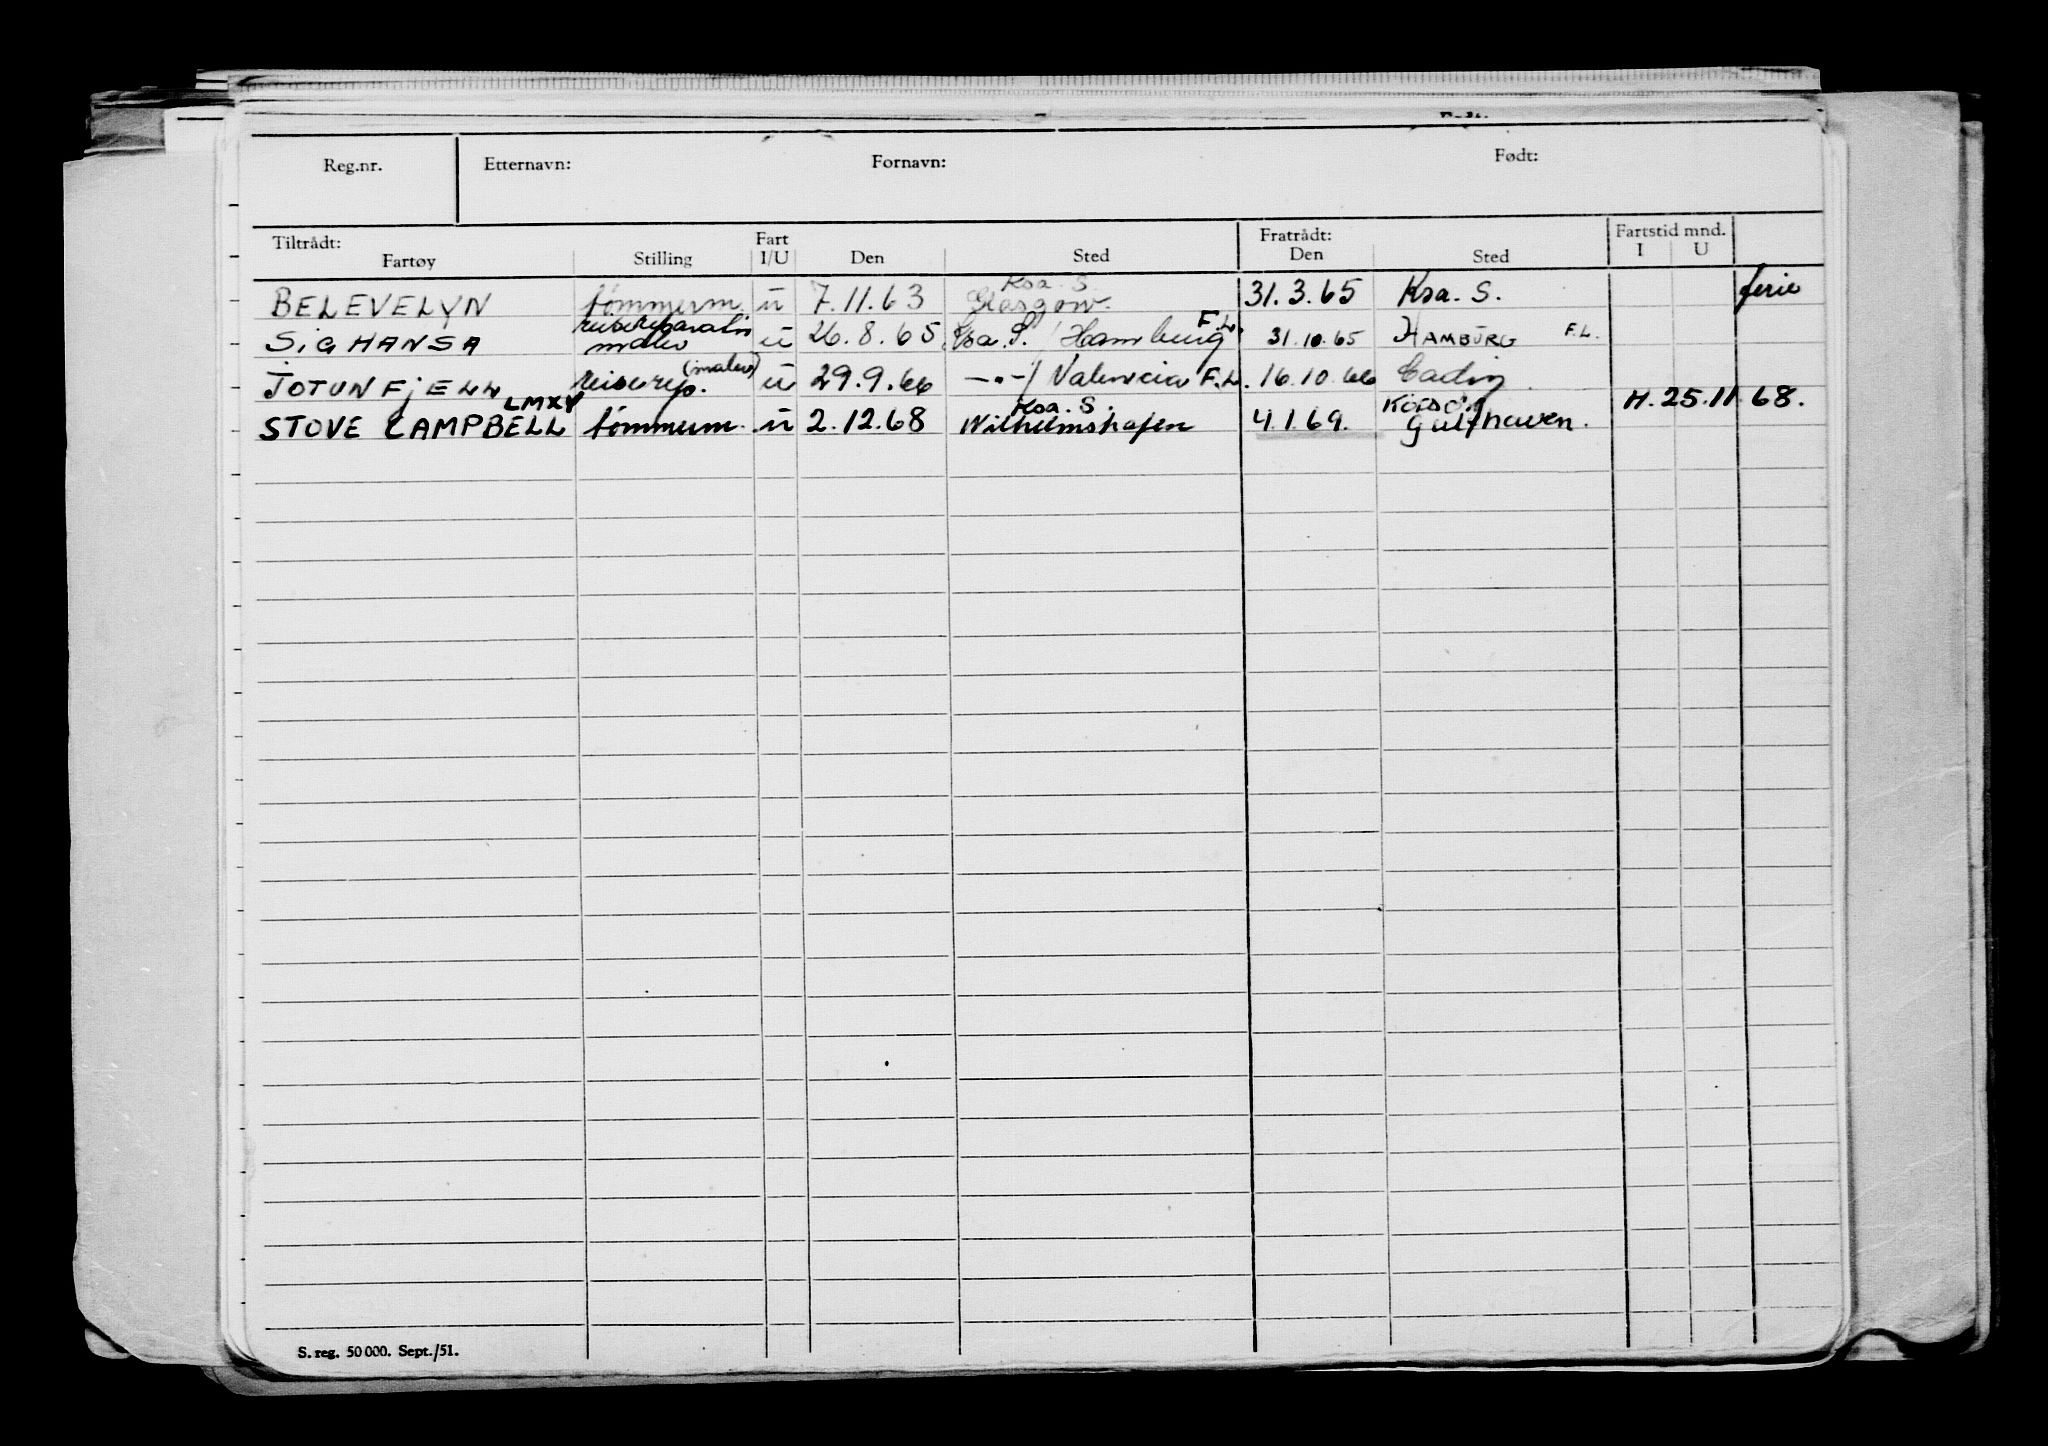 Reg.nr. Etternavn: Fornavn: Født:
Tiltrådt: Fart Fratrådt: Fartstid mnd.
Fartøy Stilling I/U Den Sted Den Sted I U
Ksa. S.
BELEVELYN tömmerm. ü 7.11.63 Glasgow. 31.3.65 Ksa. S. ferie
reisereparatör F.L.
SIGHANSA maler ü 26.8.65 Ksa. S. / Hamburg 31.10.65 HAMBURG F.L.
(maler)
JOTUNFJELL reiserep. ü 29.9.66 -"-/ Valencia F.L. 16.10.66
LMXV Ksa. S. H. 25.11.68.
STOVE CAMPBELL tömmerm. ü 2.12.68 Wilhelmshafen 4.1.69. Gulfhaven.
S. reg. 50 000. Sept./51.